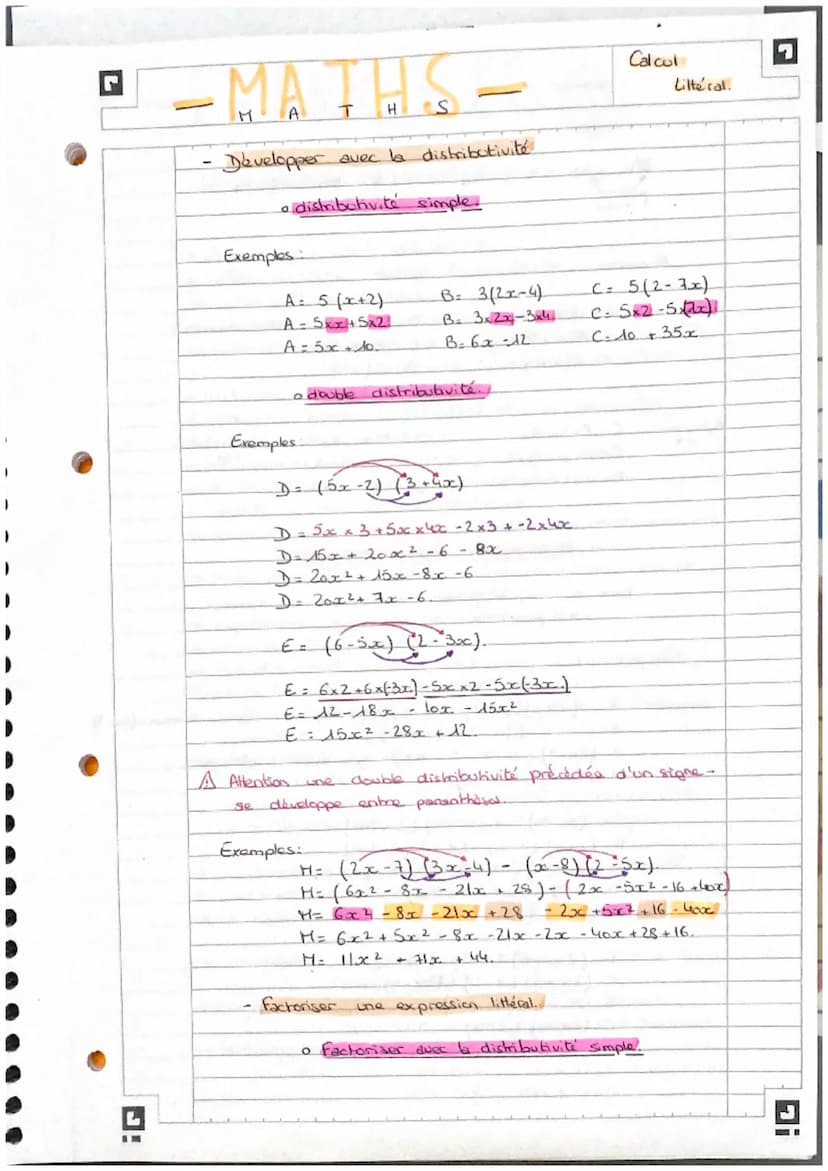 - MATHS -
M A T H S
Calcul
Littéral.
- Développer avec la distributivité
o distributivité simple.
Exemples :
A = 5 (x+2) B = 3(2x-4) C = 5(2-7x)
A = 5×x+5×2 B = 3×2x-3×4 C = 5×2-5×(7x)
A = 5x + 10. B = 6x - 12 C = 10 + 35x
o double distributivité.
Exemples
D = (5x-2) (3+4x)
D = 5x × 3 + 5x × 4x - 2×3 + -2×4x
D = 15x + 20x² - 6 - 8x
D = 20x² + 15x - 8x - 6
D = 20x² + 7x - 6.
E = (6-5x) (2-3x).
E = 6×2+6×(-3x)-5x×2-5x(-3x.)
E = 12-18x - 10x - 15x²
E = 15x² - 28x + 12.
⚠ Attention une double distributivité précédéa d'un signe -
se développe entre paranthèses.
Examples:
H = (2x-7) (3x-4) - (x-8) (2-5x).
H = (6x² - 8x - 21x + 28) - (2x - 5x² - 16 + 40x)
H = 6x² - 8x - 21x + 28 - 2x + 5x² + 16 - 40x
H = 6x² + 5x² - 8x - 21x - 2x - 40x + 28 + 16.
H = 11x² - 71x + 44.
- Factoriser une expression littéral.
o Factoriser avec la distributivité simple.